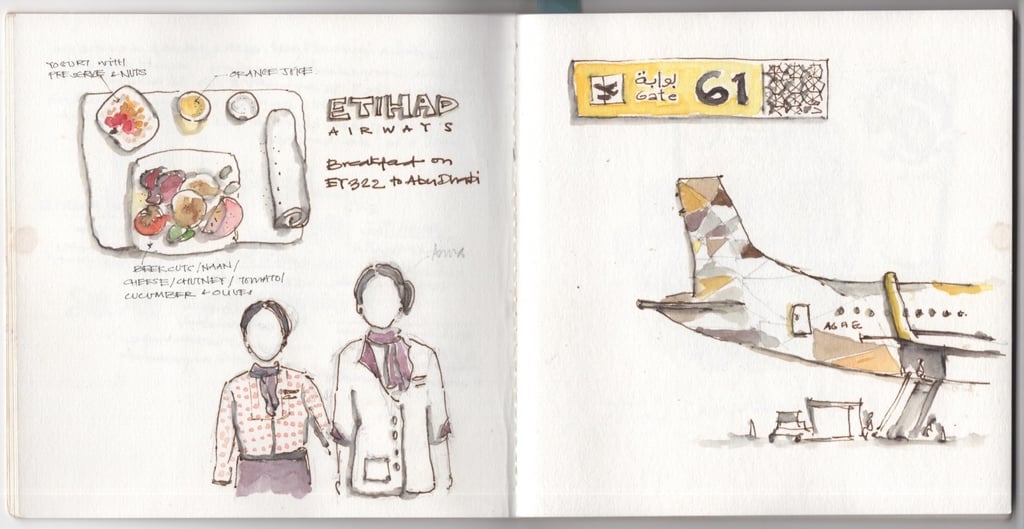 YOGURT WITH
PRESERVE & NUTS
ORANGE JUICE
ETIHAD
AIRWAYS
Breakfast on
EY322 to Abu Dhabi
BEEF CUTS/NAAN/
CHEESE/CHUTNEY/TOMATO/
CUCUMBER & OLIVES
بوابة
Gate
61